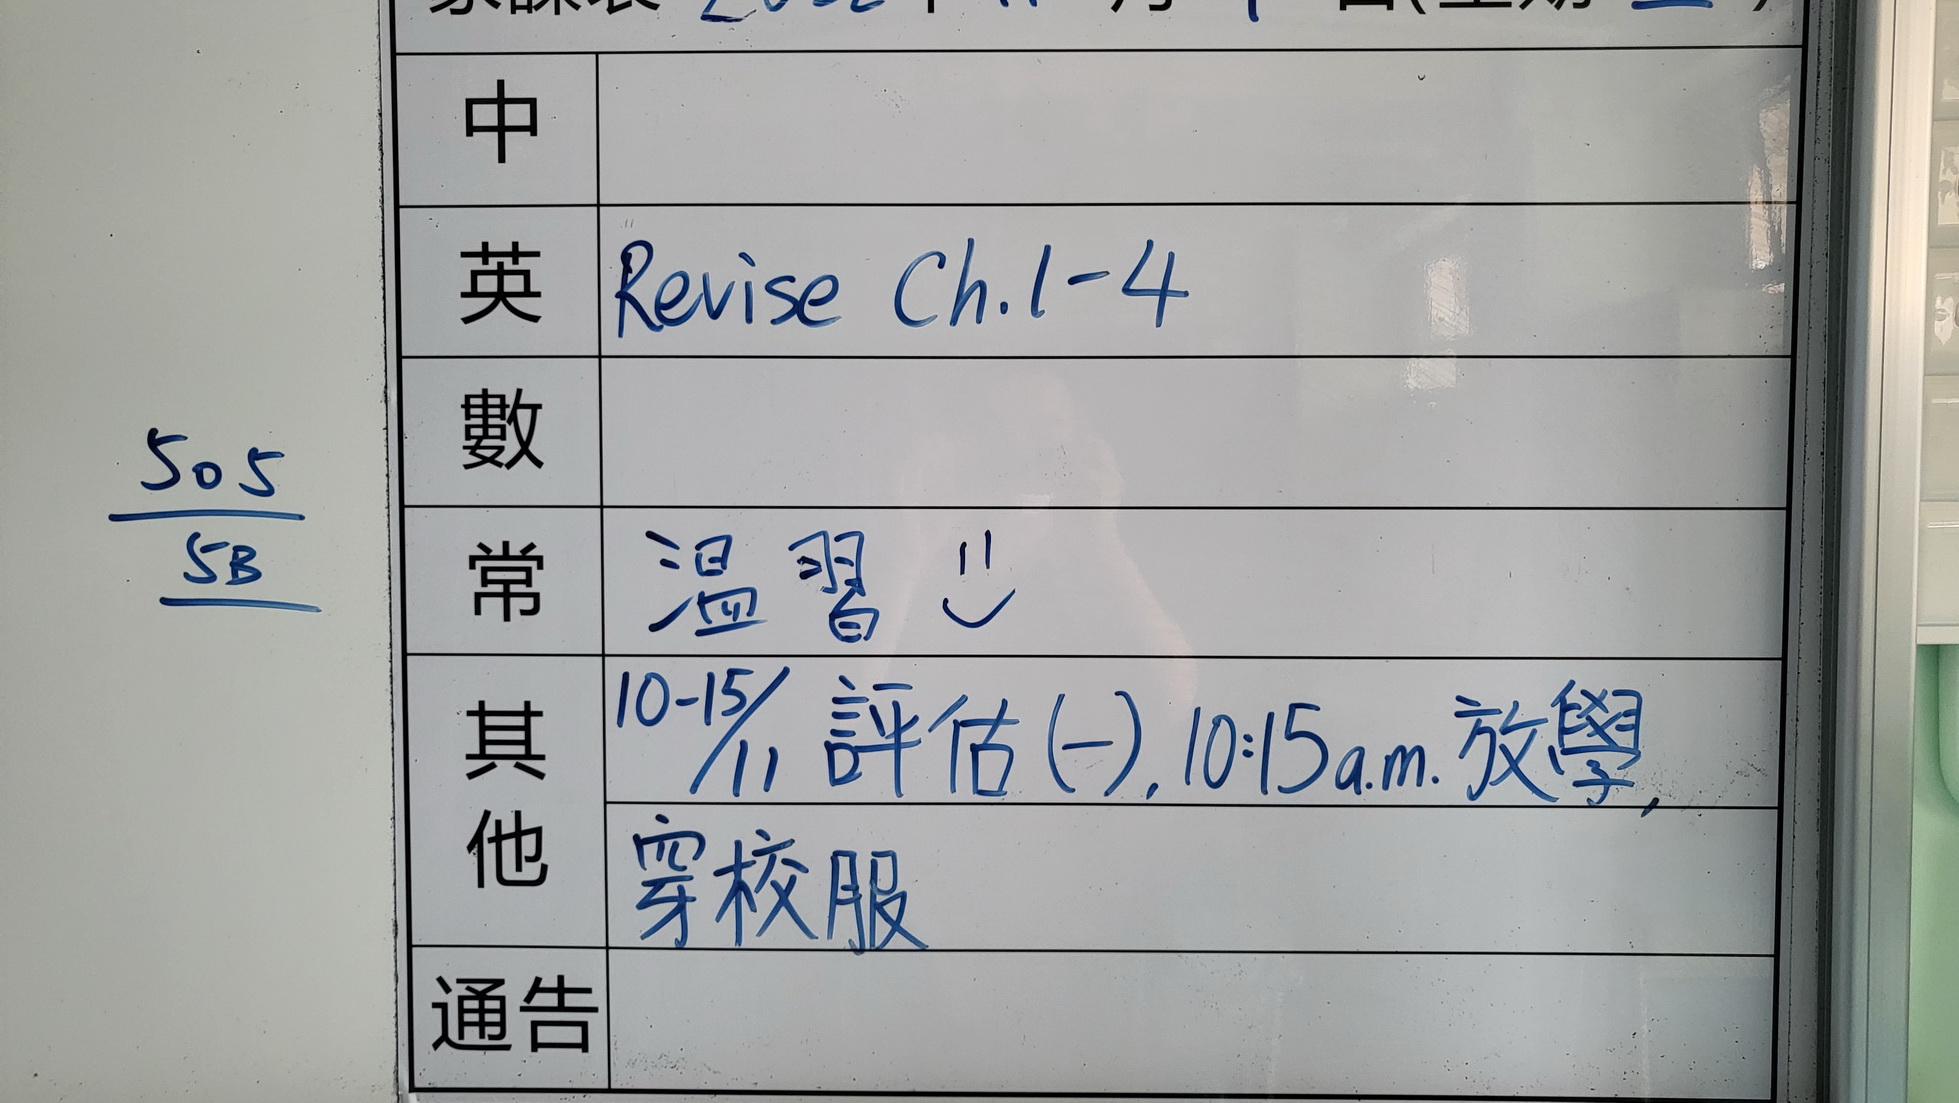 中
英 Revise Ch.1-4
數
常 温習
其他 10-15/11 評估(一), 10:15a.m. 放學,
穿校服
通告
505
5B